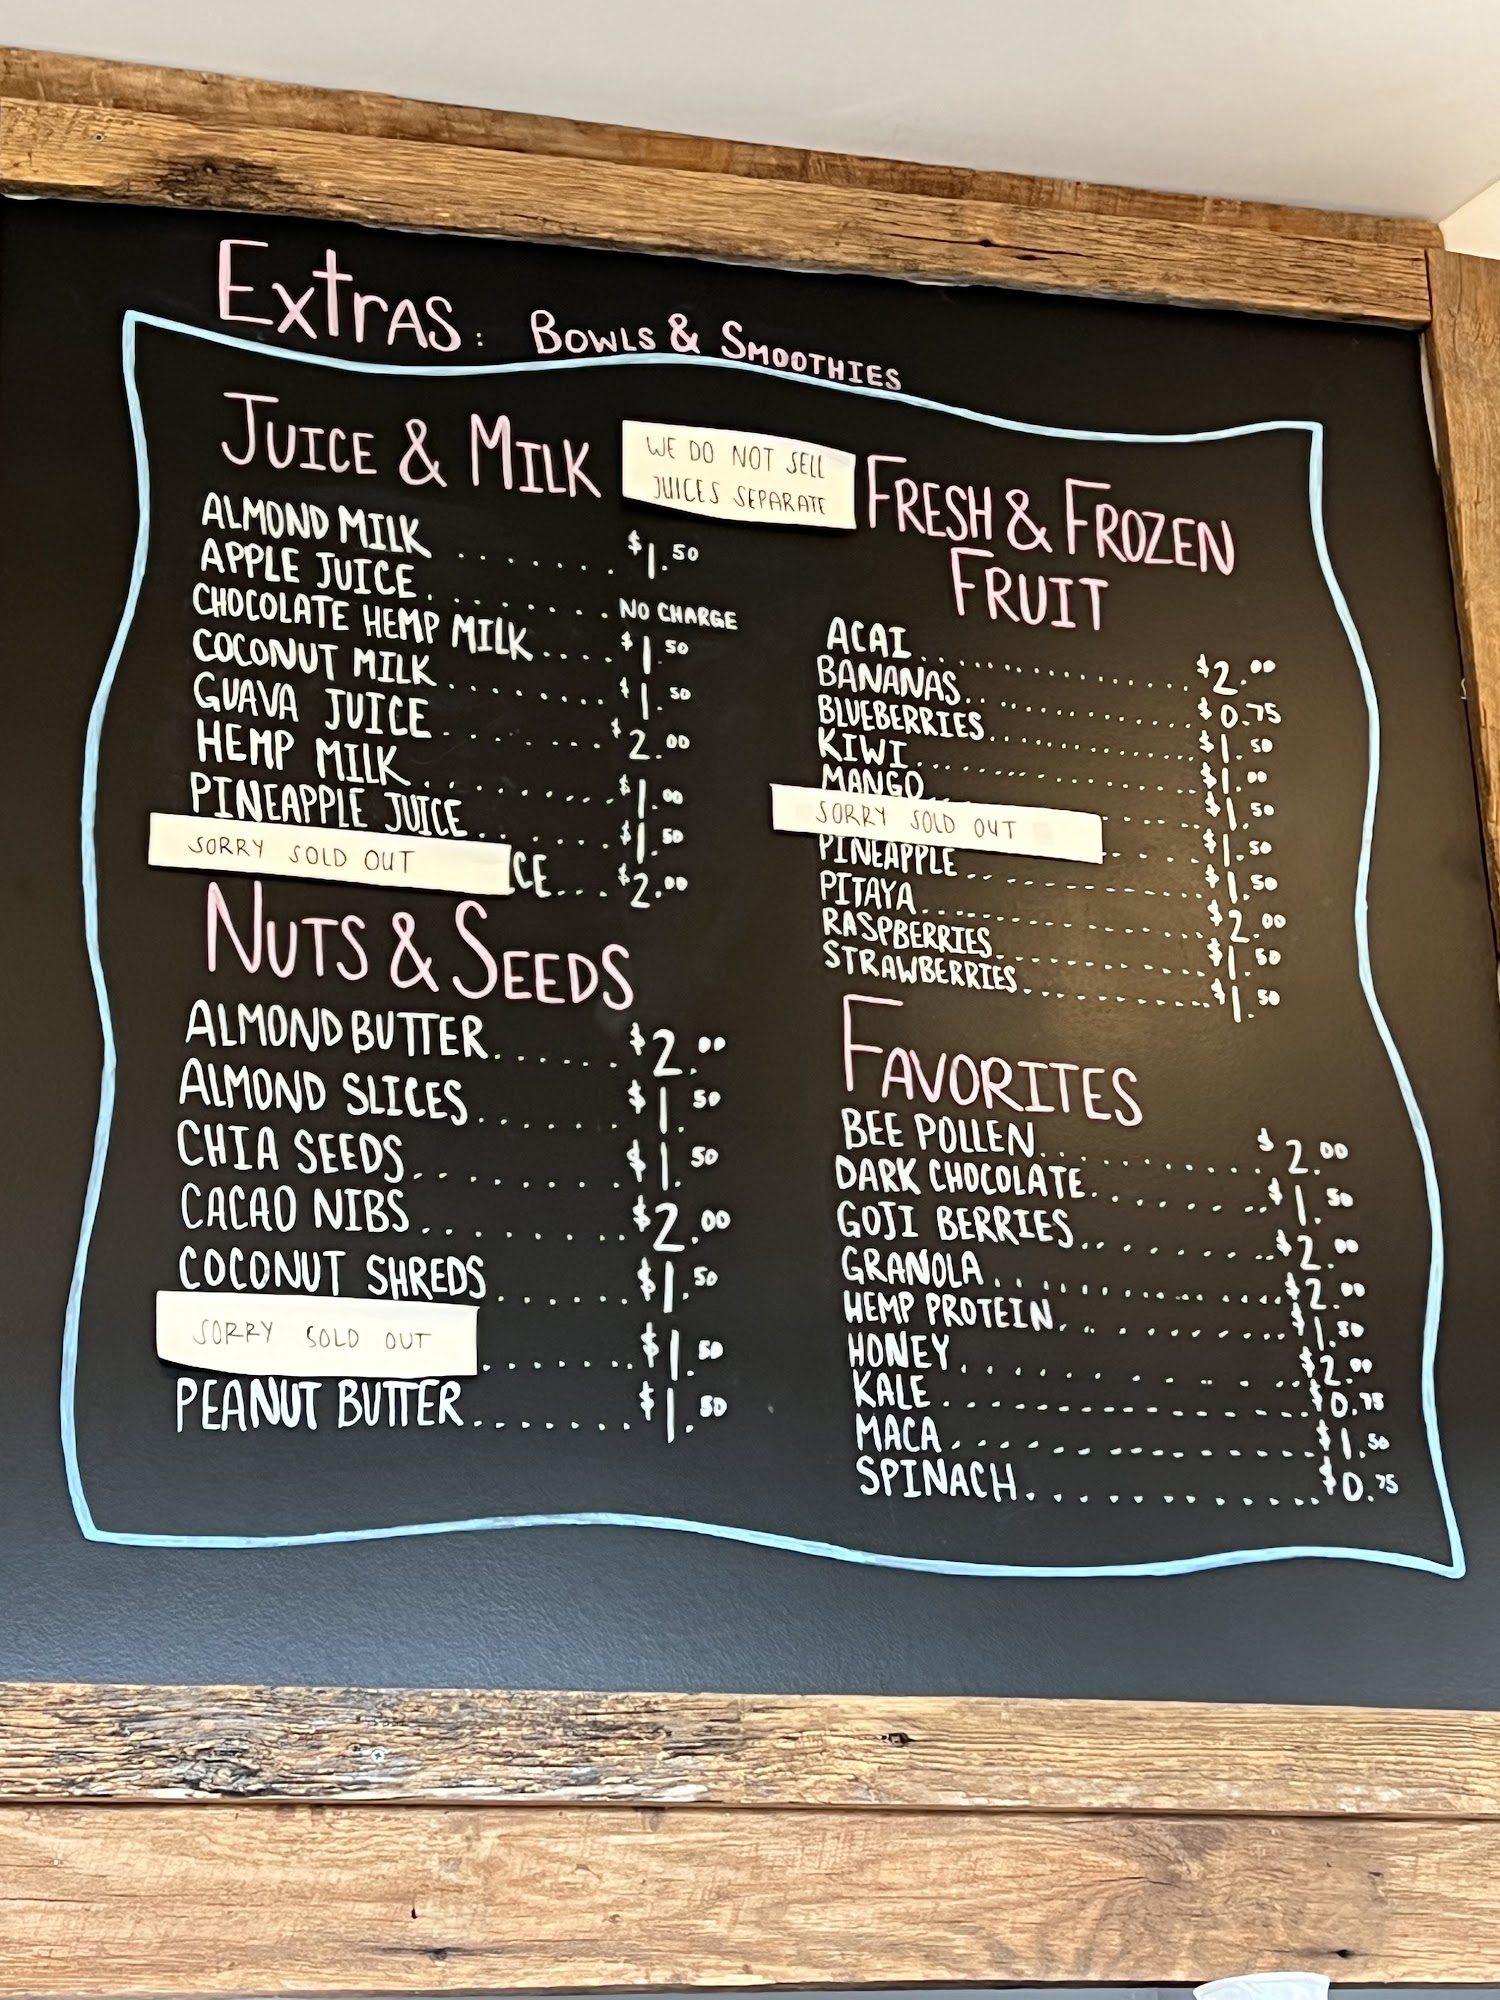 Extras: Bowls & Smoothies
Juice & Milk
WE DO NOT SELL
JUICES SEPARATE
ALMOND MILK ....... $1.50
APPLE JUICE ......... NO CHARGE
CHOCOLATE HEMP MILK .... $1.50
COCONUT MILK ........ $1.50
GUAVA JUICE ........ $2.00
HEMP MILK ......... $1.00
PINEAPPLE JUICE ...... $1.50
SORRY SOLD OUT CE... $2.00
Nuts & Seeds
ALMOND BUTTER ...... $2.00
ALMOND SLICES ...... $1.50
CHIA SEEDS ........ $1.50
CACAO NIBS ........ $2.00
COCONUT SHREDS ...... $1.50
SORRY SOLD OUT ....... $1.50
PEANUT BUTTER ....... $1.50
Fresh & Frozen
Fruit
ACAI ............... $2.00
BANANAS ............. $0.75
BLUEBERRIES ........... $1.50
KIWI ............... $1.00
MANGO .............. $1.50
SORRY SOLD OUT ...... $1.50
PINEAPPLE ............ $1.50
PITAYA .............. $2.00
RASPBERRIES ........... $1.50
STRAWBERRIES .......... $1.50
Favorites
BEE POLLEN ........... $2.00
DARK CHOCOLATE ........ $1.50
GOJI BERRIES .......... $2.00
GRANOLA ............. $2.00
HEMP PROTEIN .......... $1.50
HONEY .............. $2.00
KALE ............... $0.75
MACA ............... $1.50
SPINACH ............. $0.75